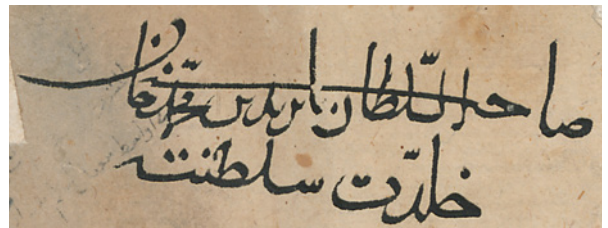 صاحبه السّلطان بايزيد بن محمد خان
خلدّت سلطنته